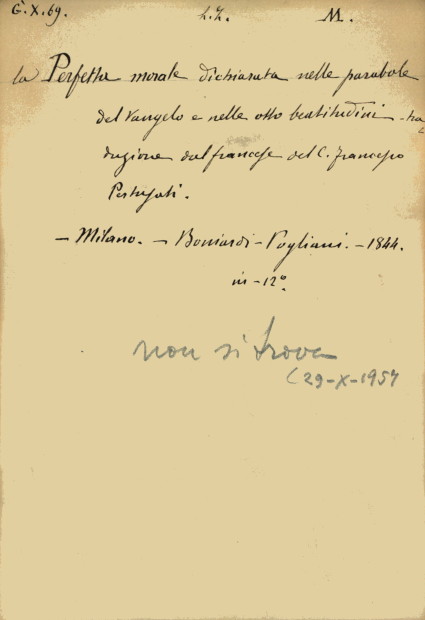 G.X.69. L.Z. M.
la Perfetta morale dichiarata nelle parabole
del Vangelo e nelle otto beatitudini - tra
duzione dal francese del C. Francesco
Pertusati.
- Milano. - Boniardi-Pogliani. - 1844.
in-12°.
non si trova
(29-X-1957